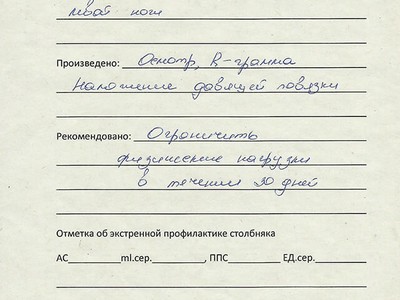 левой ноги
Произведено: Осмотр, R-грамма
Наложение давящей повязки
Рекомендовано: Ограничить
физические нагрузки
в течении 30 дней
Отметка об экстренной профилактике столбняка
АС__________ml.сер.__________, ППС__________ЕД.сер.__________